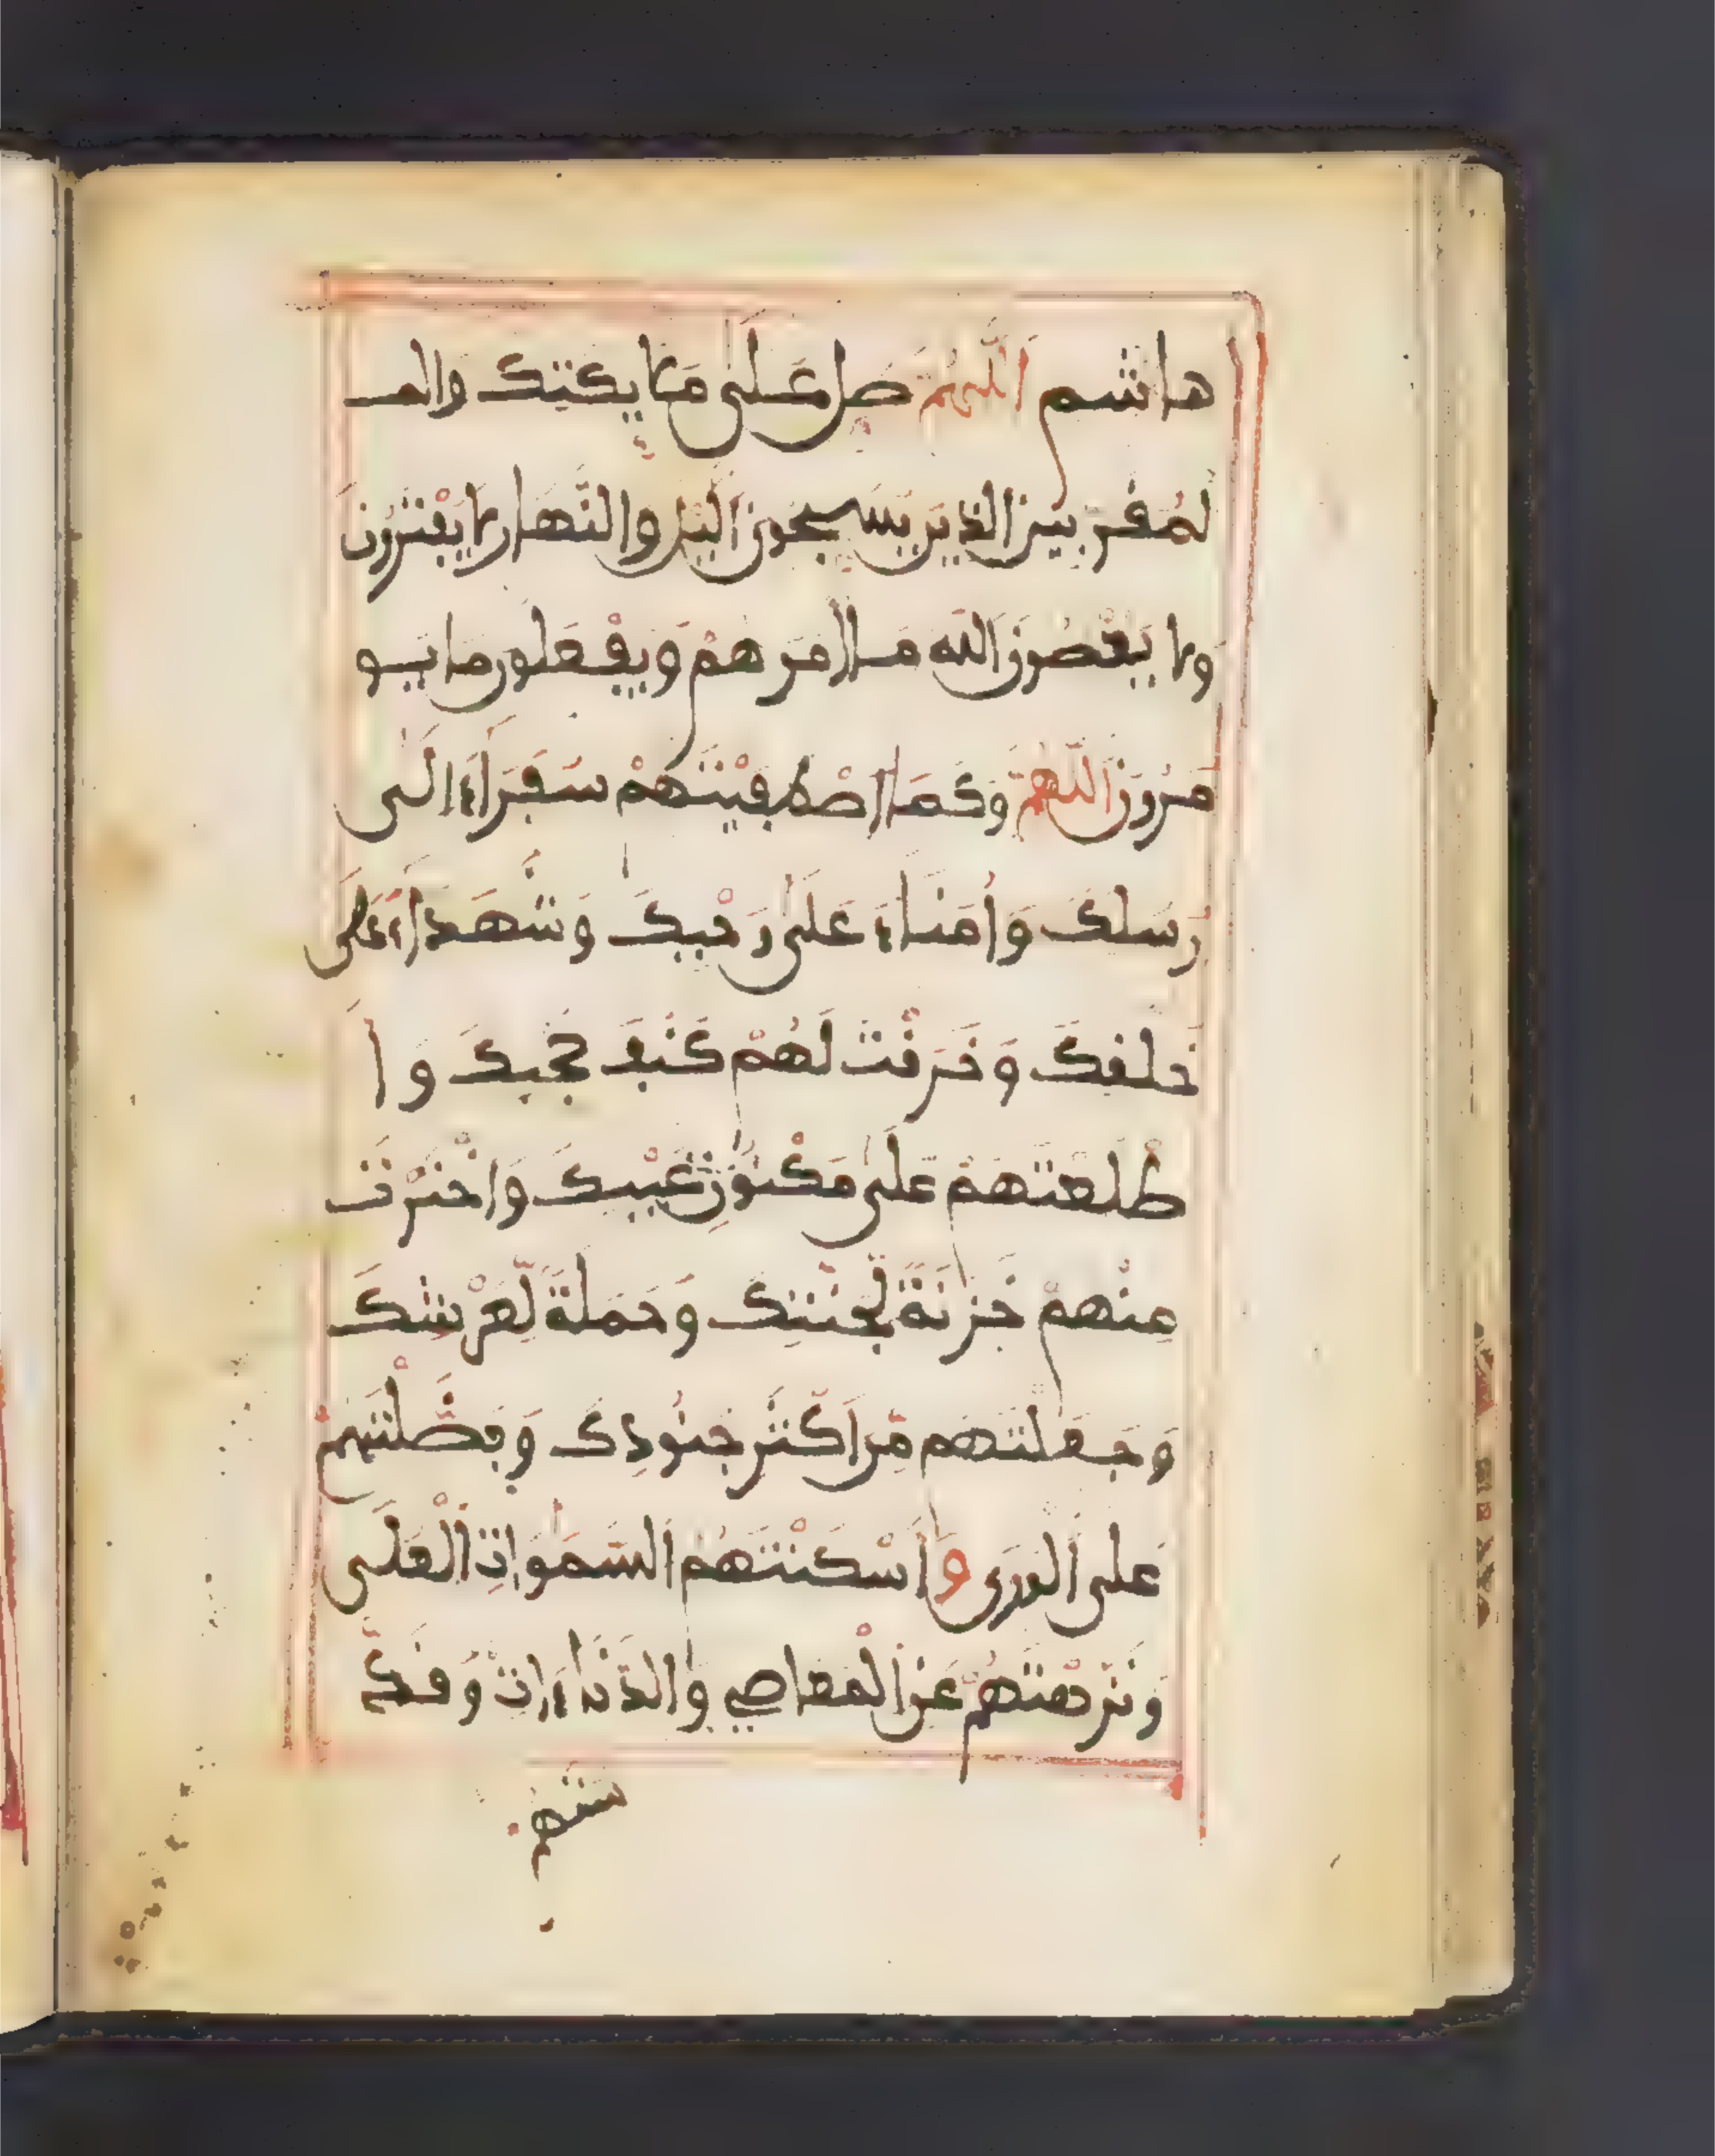 هاشم اللهم صل على ملايكتك والمـ
لمقربين الذين يسبحون اليل والنهار لا يفترون
ولا يعصون الله ما أمرهم ويفعلون ما يو
مرون اللهم وكما اصطفيتهم سفراء الى
رسلك وأمناء على وحيك وشهداء على
خلقك وخرقت لهم كنف حجبك وا
طلعتهم على مكنون غيبك واخترت
منهم خزنة لجنتك وحملة لعرشك
وجعلتهم من اكثر جنودك وفضلتهم
على الورى وأسكنتهم السموات العلى
ونزهتهم عن المعاصي والدناءات وقد
ستهم